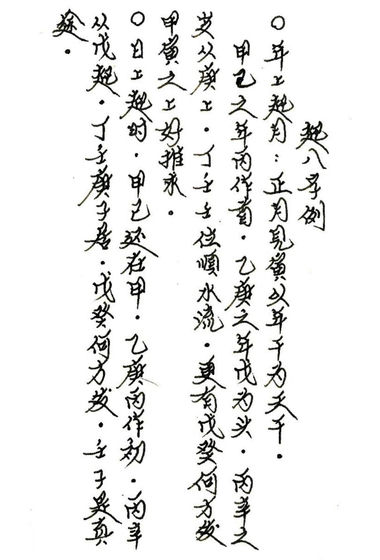 起八字例
○年上起月：正月見寅以年干为天干。
甲己之年丙作首。乙庚之年戊为头。丙辛之
岁从庚上。丁壬壬位順水流。更有戊癸何方发
甲寅之上好推求。
○日上起时。甲己还在甲。乙庚丙作初。丙辛
从戊起。丁壬庚子居。戊癸何方发。壬子是真
途。